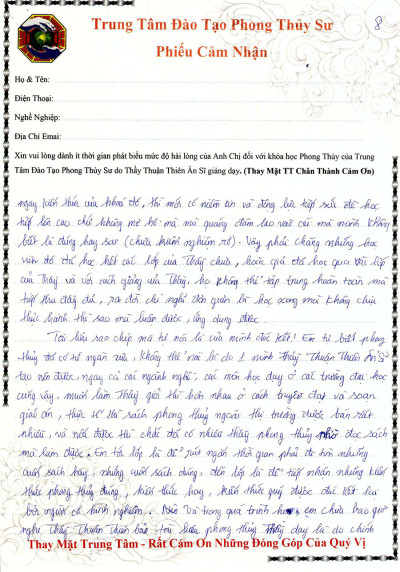 8
Trung Tâm Đào Tạo Phong Thủy Sư
Phiếu Cảm Nhận
Họ & Tên:
Điện Thoại:
Nghề Nghiệp:
Địa Chỉ Emai:
Xin vui lòng dành ít thời gian phát biểu mức độ hài lòng của Anh Chị đối với khóa học Phong Thủy của Trung
Tâm Đào Tạo Phong Thủy Sư do Thầy Thuận Thiên Ấn Sĩ giảng dạy. (Thay Mặt TT Chân Thành Cảm Ơn)
ngay kiến thức của khoá đó, thì mới có niềm tin và động lực tiếp sức để học
tiếp lên cao chứ không mơ hồ mà mù quáng đâm lao vào cái mà mình không
biết là đúng hay sai (chưa kiểm nghiệm rõ). Vậy phải chăng những học
viên đó đã học hết các lớp của Thầy chưa, hoặc giả đã học qua vài lớp
của Thầy và với cách giảng của Thầy, họ không thể tập trung hoàn toàn mà
tiếp thu đầy đủ, ra đời chỉ nghĩ đến quán là học xong mà không chịu
thực hành thì sao mà luận được, ứng dụng được.
Tài liệu sao chép mà tự nói là của mình đúc kết! Em tự biết phong
thủy đã có từ ngàn xưa, không thể nói là do 1 mình Thầy "Thuận Thiên Ấn Sĩ"
tạo nên được, ngay cả các ngành nghề, các môn học dạy ở các trường đại học
cũng vậy, mười làm Thầy giỏi thì hơn nhau ở cách truyền đạt và soạn
giáo án, thực tế thì sách phong thủy ngoài thị trường được bán rất
nhiều, và nếu được thì chắc đã có nhiều thầy phong thủy nhờ đọc sách
mà làm được. Em tới lớp là để rút ngắn thời gian phải đi tìm những
cuốn sách hay, những cuốn sách đúng, đến lớp là để tiếp nhận những kiến
thức phong thủy đúng, kiến thức hay, kiến thức quý được đúc kết từ
bởi người có kinh nghiệm. Nữa và trong quá trình học, em chưa bao giờ
nghe Thầy Thuận Thiên bảo tài liệu phong thủy Thầy dạy là do chính
Thay Mặt Trung Tâm - Rất Cảm Ơn Những Đóng Góp Của Quý Vị